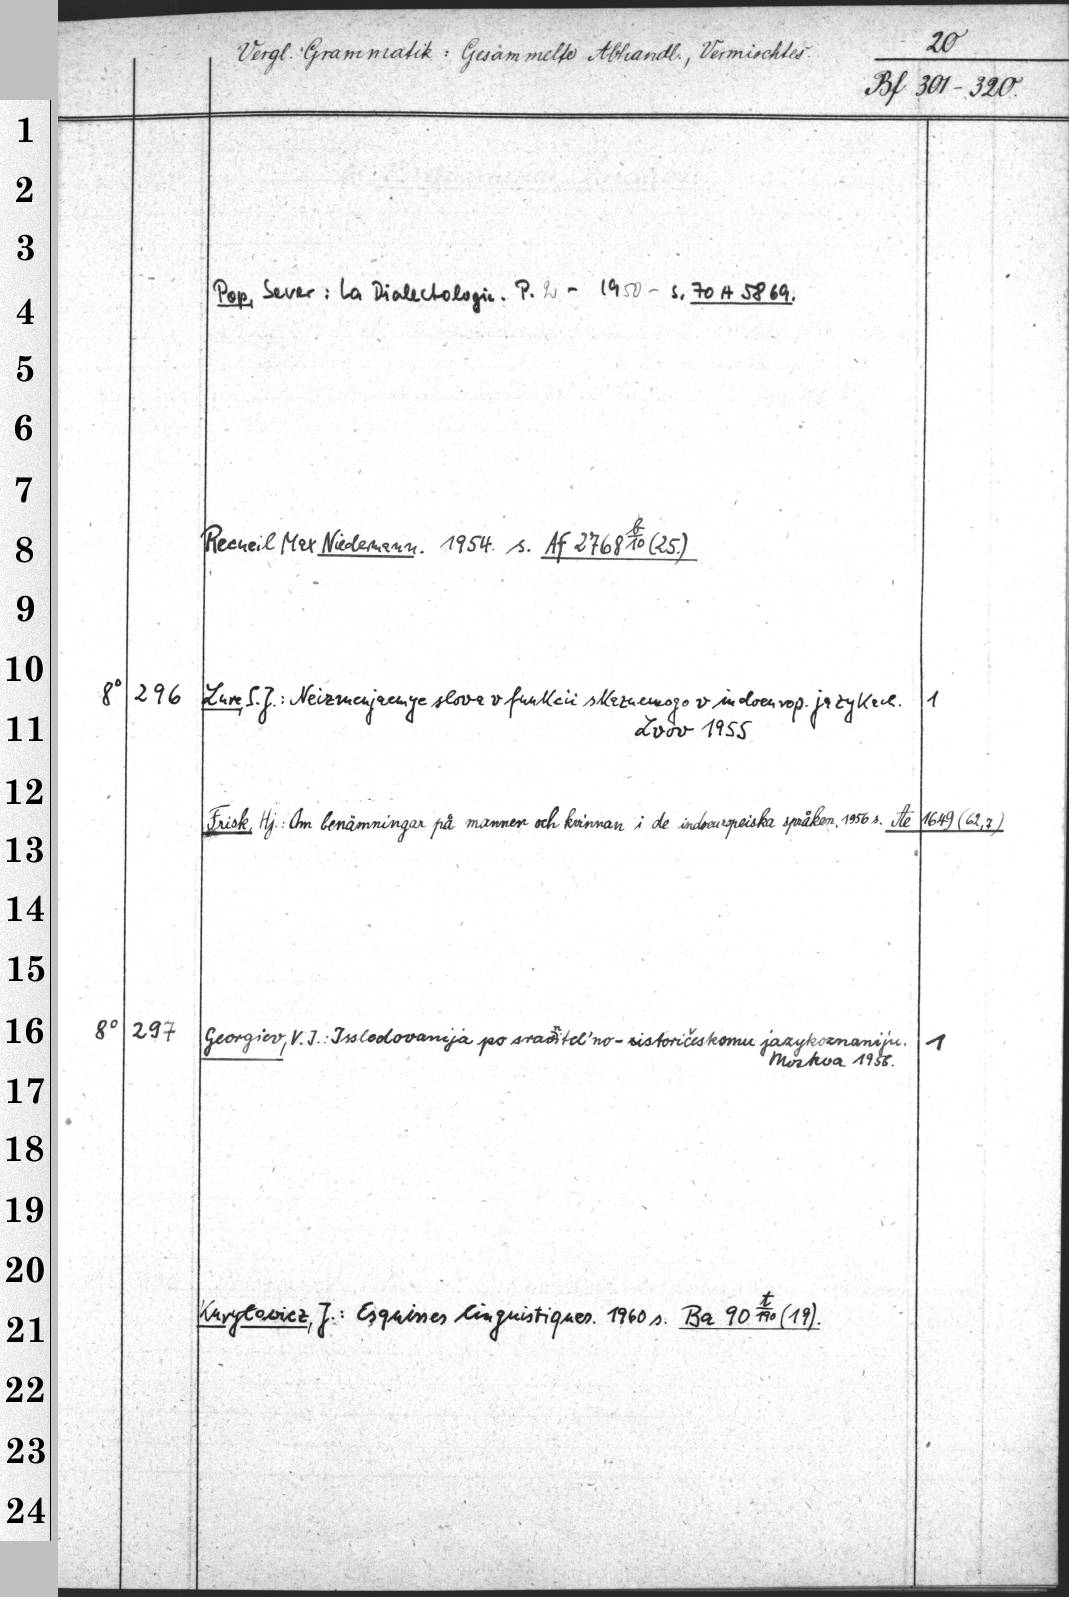 Vergl. Grammatik : Gesammelte Abhandl., Vermischtes.
20
Bf 301 - 320.
1
2
3
Pop, Sever : La Dialectologie. P. 2 - 1950 - s. 70 A 5869.
4
5
6
7
Recueil Max Niedermann. 1954. s. Af 2768 /10 (25.)
8
9
10
8° 296 S. J.: Neizmenjaemye slova v funkcii skazuemogo v indoevrop. jazykach. 1
Lvov 1955
11
12
Frisk, Hj.: Om benämningar på mannen och kvinnan i de indoeuropeiska språken. 1956 s. Ae 1649 (62,7)
13
14
15
8° 297 Georgiev, V. I.: Issledovanija po sravnitel'no-istoričeskomu jazykoznaniju. 1
Moskva 1958.
16
17
18
19
20
Kuryłowicz, J.: Esquisses linguistiques. 1960 s. Ba 90 t/190 (19).
21
22
23
24